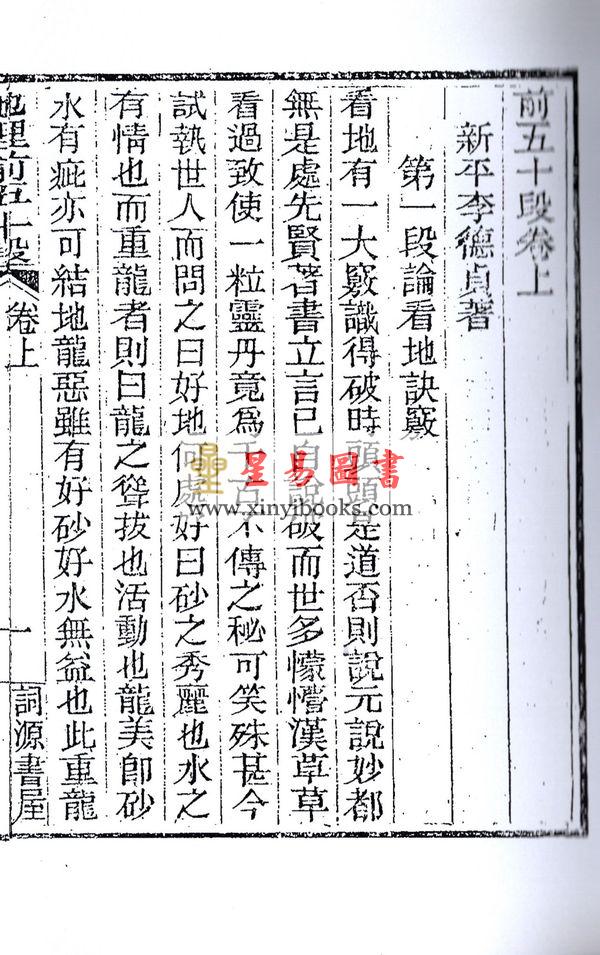 前五十段卷上
新平李德貞著
第一段論看地訣竅
看地有一大竅識得破時頭頭是道否則說元說妙都
無是處先賢著書立言已自說破而世多懞懵漢草草
看過致使一粒靈丹竟爲千古不傳之秘可笑殊甚今
試執世人而問之曰好地何處好曰砂之秀麗也水之
有情也而重龍者則曰龍之聳拔也活動也龍美卽砂
水有疵亦可結地龍惡雖有好砂好水無益也此重龍
地理前五十段 卷上 一 詞源書屋
星易圖書
www.xinyibooks.com